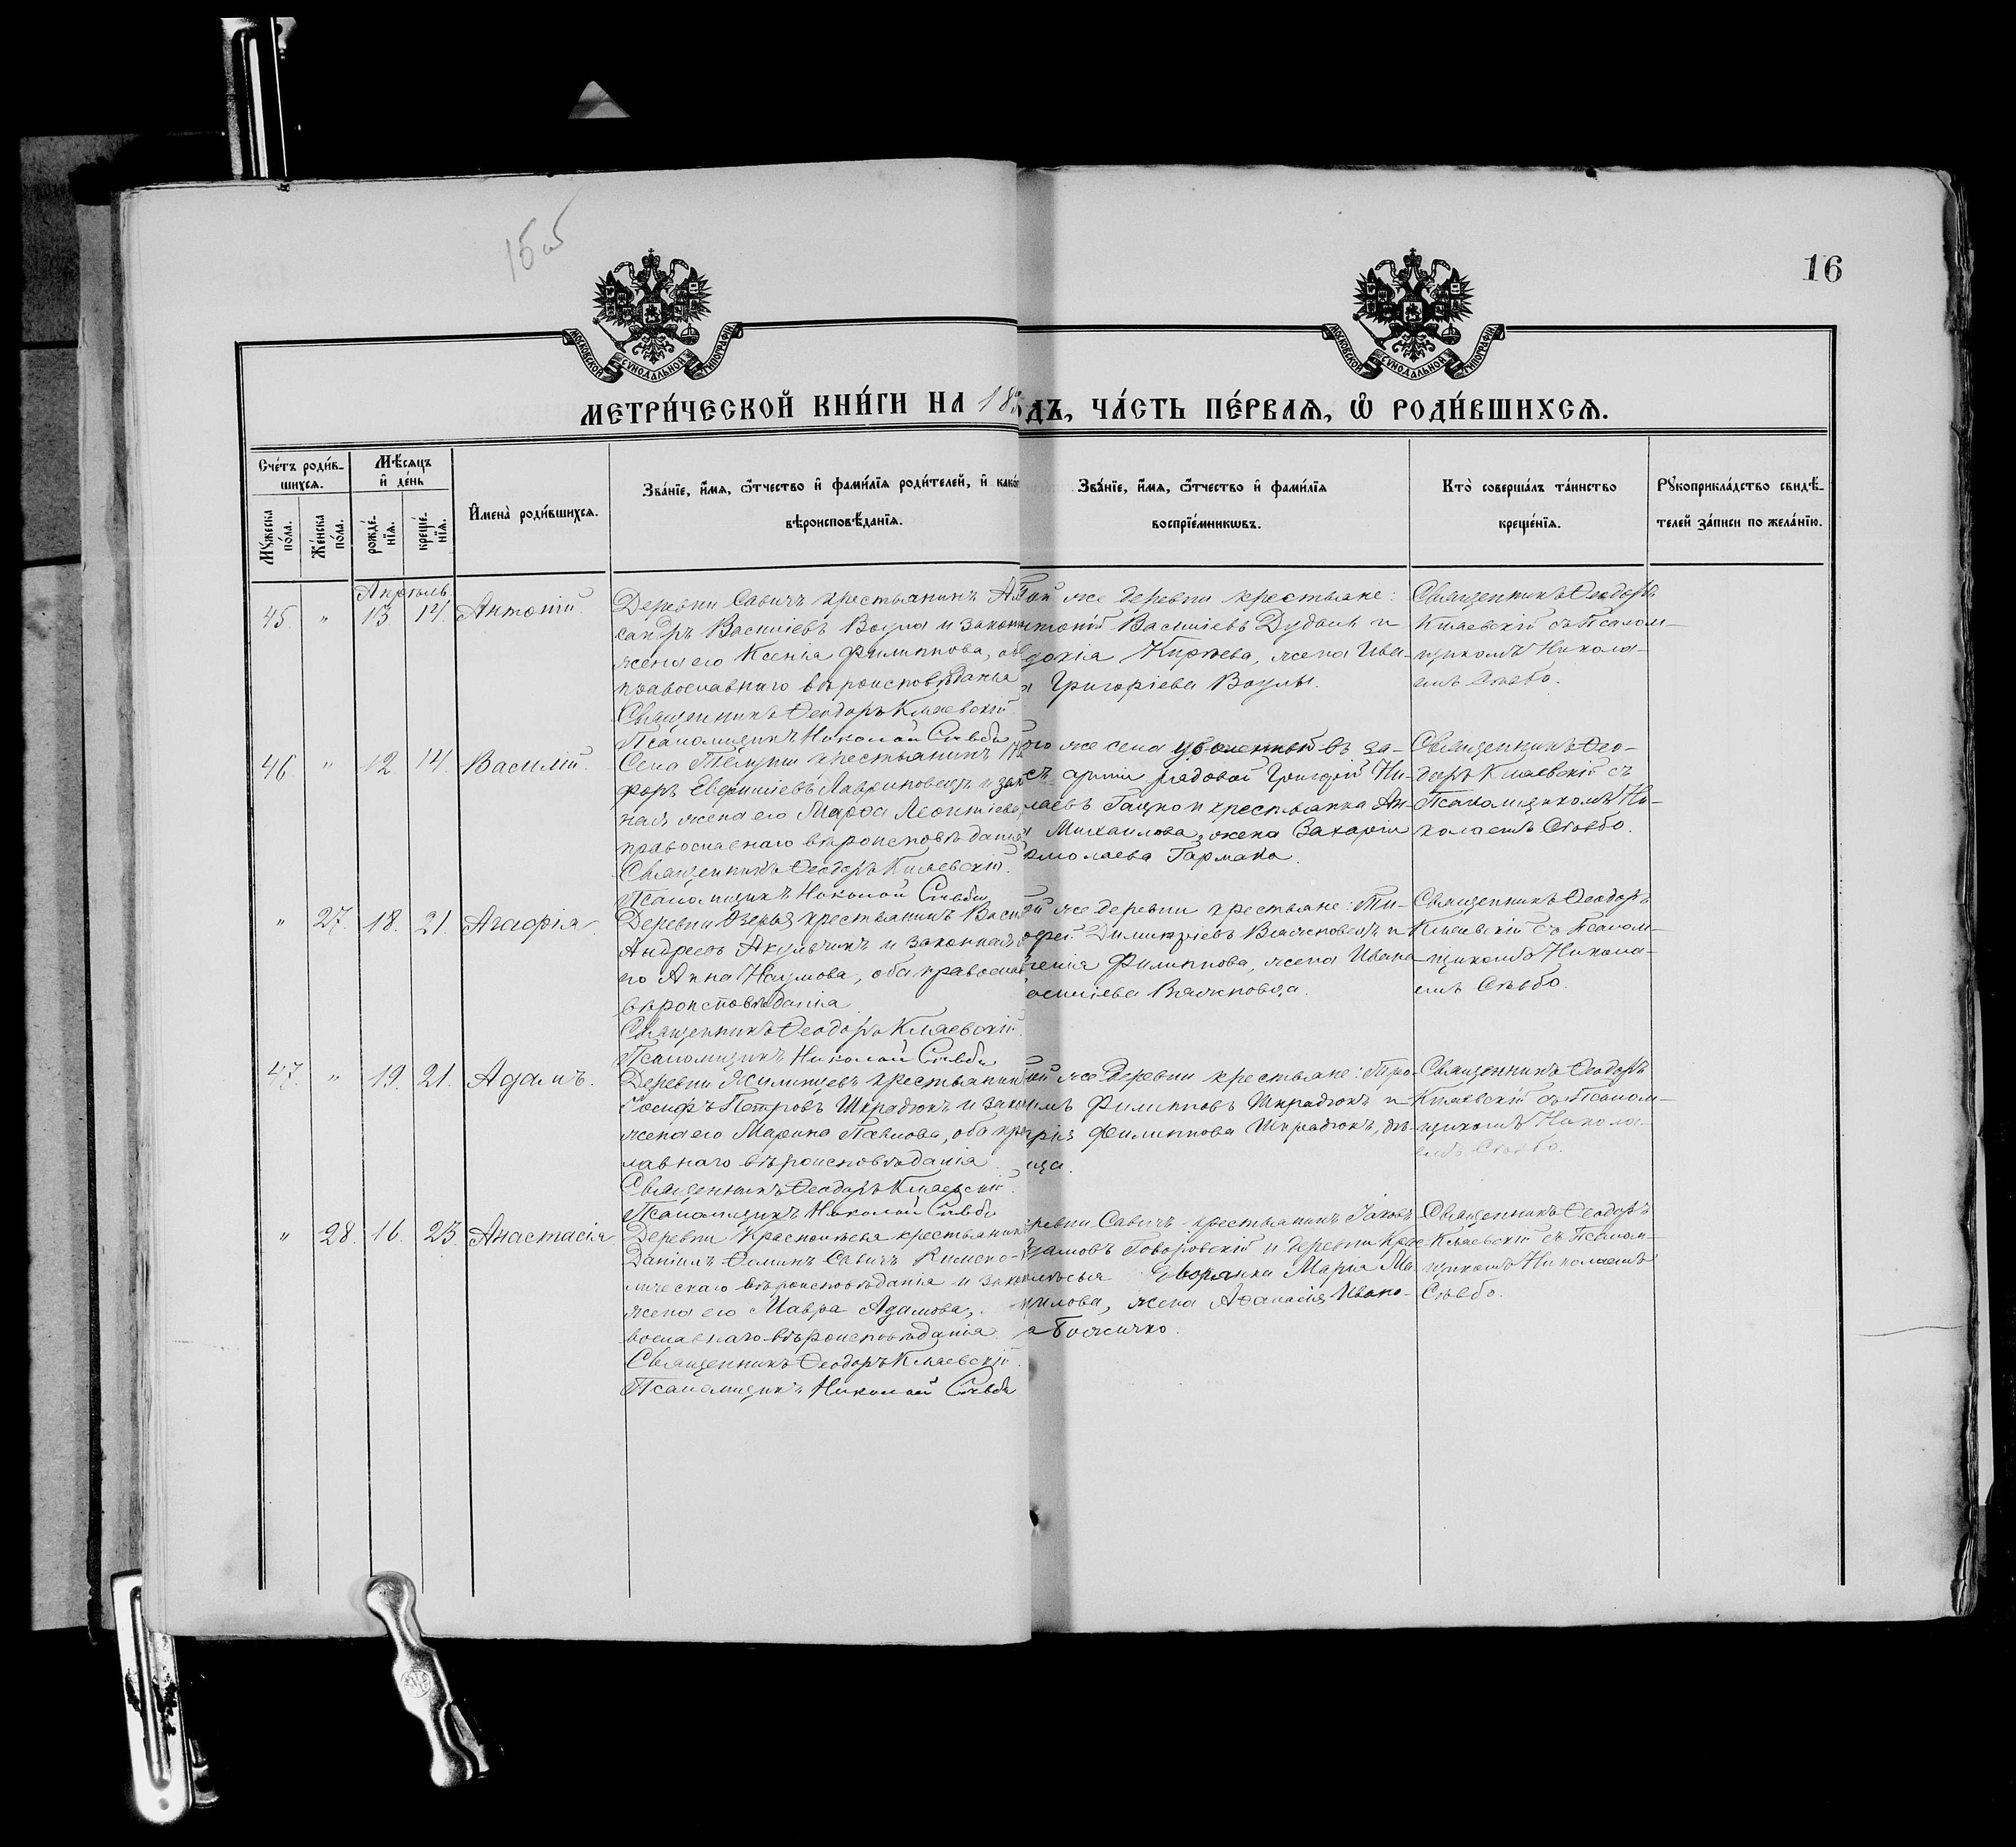 15 об
16
МОСКОВСКОЙ СѴНОДАЛЬНОЙ ТИПОГРАФІИ
МОСКОВСКОЙ СѴНОДАЛЬНОЙ ТИПОГРАФІИ
МЕТРИ́ЧЕСКОЙ КНИ́ГИ НА 18
ДЪ, ЧА́СТЬ ПЕ́РВАѦ, Ѡ҆ РОДИ́ВШИХСѦ.
Сче́тъ роди́в-
шихсѧ.
Мꙋ́жеска по́ла.
Же́нска по́ла.
Мѣ́сѧцъ
и҆ де́нь
рожде́-
нїѧ.
креще́-
нїѧ.
И҆мена̀ роди́вшихсѧ.
Зва́нїе, и҆́мѧ, ѻ҆́тчество и҆ фами́лїѧ роди́телей, и҆ како́
вѣроисповѣ́данїѧ.
Зва́нїе, и҆́мѧ, ѻ҆́тчество и҆ фами́лїѧ
воспрїе́мникѡвъ.
Кто̀ соверша́лъ та́инство
креще́нїѧ.
Рꙋкоприкла́дство свидѣ́-
телей за́писи по жела́нїю.
Апрѣль
45. " 13 14. Антоній.
Деревни Савичъ крестьянинъ Ал
сандръ Василіевъ Воула и законн
жена его Ксенія Филиппова, об
православнаго вѣроисповѣданія
Священникъ Ѳеодоръ Кляевскій.
Псаломщикъ Николай Сиѣбо
той же деревни крестьяне:
нтоній Василіевъ Дубань и
докія Кирѣева, жена Ива-
а Григоріева Воулы.
Священникъ Ѳеодоръ
Кляевскій съ Псалом-
щикомъ Никола-
емъ Сиѣбо.
46 " 12 14. Василій.
Села Телуши крестьянинъ
форъ Евфиміевъ Лавриновецъ и зак
ная жена его Марѳа Леонтіева,
православнаго вѣроисповѣданія
Священникъ Ѳеодоръ Кляевскій.
Псаломщикъ Николай Сиѣбо
ого же села уволенный въ за-
съ арміи рядовой Григорій Ни-
лаевъ Гацко и крестьянка Ан-
а Михаилова, жена Захаріи
рмолаева Гармаки.
Священникъ Ѳео-
доръ Кляевскій съ
Псаломщикомъ Ни-
колаемъ Сиѣбо.
" 27. 18. 21. Агафія.
Деревни Озерья крестьянинъ Васи
Андреевъ Акуличикъ и законная
его Анна Наумова, оба правосла
вѣроисповѣданія
Священникъ Ѳеодоръ Кляевскій.
Псаломщикъ Николай Сиѣбо
ой же деревни крестьяне: Ти-
офей Димитріевъ Вялиновецъ и
генія Филиппова, жена Ивана
асиліева Вялиновца.
Священникъ Ѳеодоръ
Кляевскій съ Псалом-
щикомъ Никола-
емъ Сиѣбо.
47. " 19. 21. Адамъ.
Деревни Ясилинцевъ крестьянин
Іосифъ Петровъ Шкрадюкъ и закон
жена его Марина Павлова, оба пра
лавнаго вѣроисповѣданія.
Священникъ Ѳеодоръ Кляевскій.
Псаломщикъ Николай Сиѣбо
той же деревни крестьяне: Тро-
имъ Филипповъ Шкрадюкъ и
рія Филиппова Шкрадюкъ, дѣ-
ица.
Священникъ Ѳеодоръ
Кляевскій съ Псалом-
щикомъ Никола-
емъ Сиѣбо.
" 28. 16. 23. Анастасія
Деревни Краснолѣсья крестьянин
Даніилъ Ѳоминъ Савичъ Римско-
лическаго вѣроисповѣданія и закон
жена его Мавра Адамова,
вославнаго вѣроисповѣданія.
Священникъ Ѳеодоръ Кляевскій.
Псаломщикъ Николай Сиѣбо
ревни Савичъ крестьянинъ Іаковъ
дамовъ Говоровскій и деревни Крас-
лѣсья дворянка Марія Ма-
илова, жена Аѳанасія Ивано-
а Божичко.
Священникъ Ѳеодоръ
Кляевскій съ Псалом-
щикомъ Николаемъ
Сиѣбо.